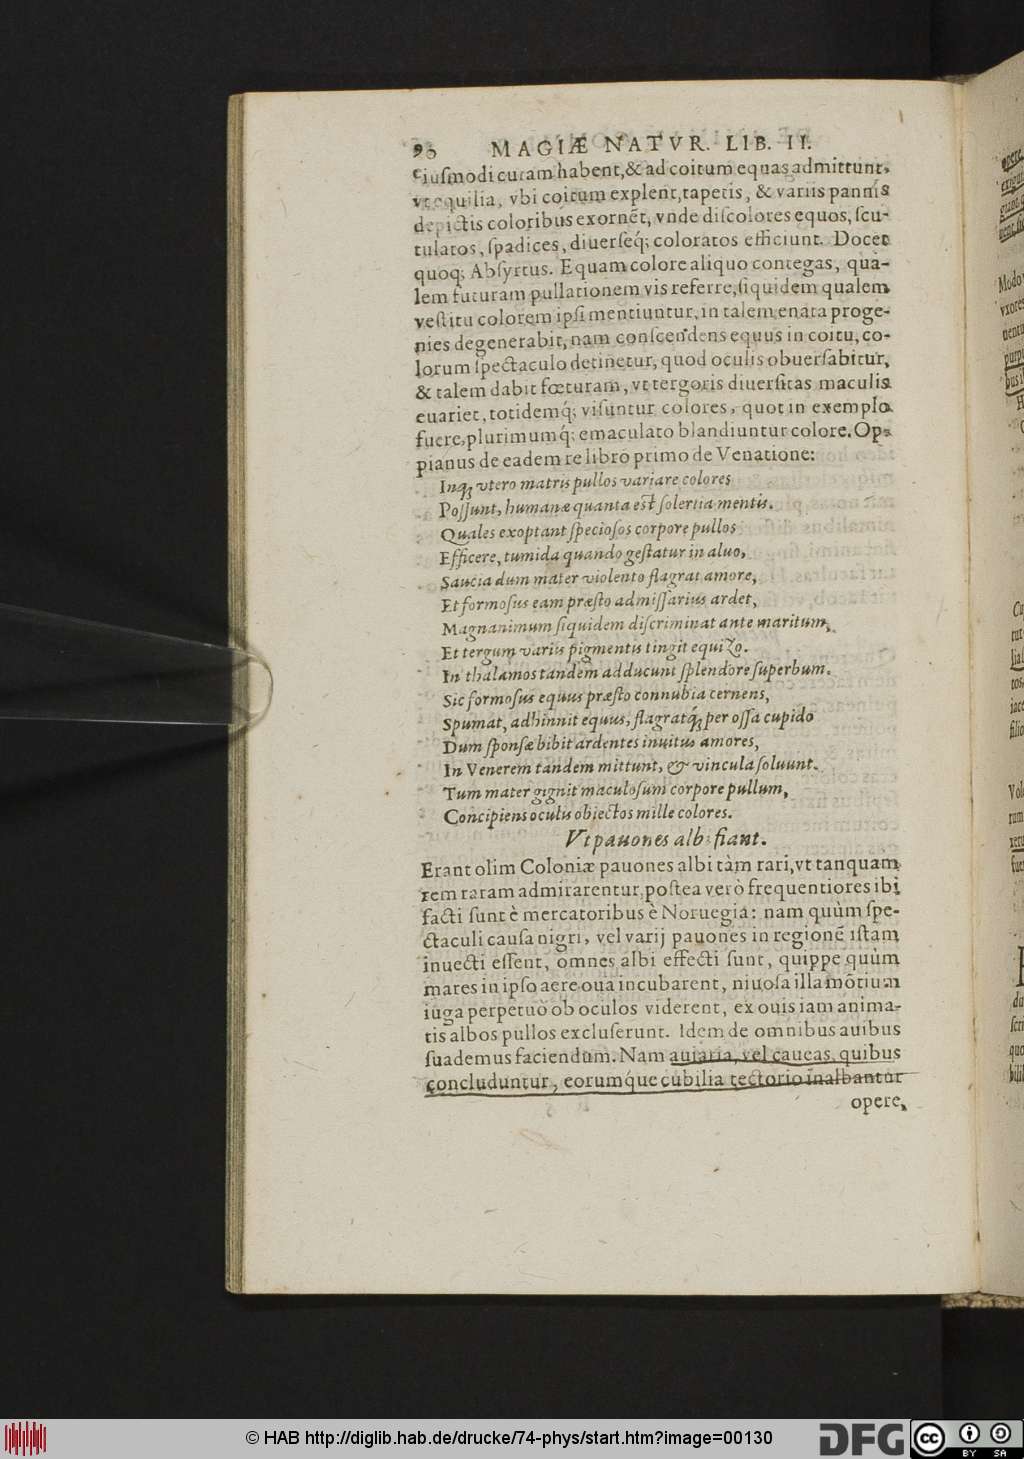 90 MAGIÆ NATVR. LIB. II.
eiuſmodi curam habent, & ad coitum equas admittunt,
vt equilia, vbi coitum explent, tapetis, & variis pannis
depictis coloribus exornēt, vnde diſcolores equos, ſcu-
tulatos, ſpadices, diuerſeq́; coloratos efficiunt. Docet
quoq; Abſyrtus. Equam colore aliquo contegas, qua-
lem futuram pullationem vis referre, ſiquidem qualem
veſtitu colorem ipſi mentiuntur, in talem enata proge-
nies degenerabit, nam conſcendens equus in coitu, co-
lorum ſpectaculo detinetur, quod oculis obuerſabitur,
& talem dabit fœturam, vt tergoris diuerſitas maculis
euariet, totidemq́; viſuntur colores, quot in exemplo
fuere, plurimumq́; emaculato blandiuntur colore. Op-
pianus de eadem re libro primo de Venatione:
Inq; vtero matris pullos variare colores
Poſſunt, humanæ quanta eſt ſolertia mentis.
Quales exoptant ſpecioſos corpore pullos
Efficere, tumida quando geſtatur in aluo,
Saucia dum mater violento flagrat amore,
Et formoſus eam præſto admiſſarius ardet,
Magnanimum ſiquidem diſcriminat ante maritum,
Et tergum variis pigmentis tingit equiZo.
In thalamos tandem adducunt ſplendore ſuperbum.
Sic formoſus equus præſto connubia cernens,
Spumat, adhinnit equus, flagratq́; per oſſa cupido
Dum ſponſæ bibit ardentes inuitus amores,
In Venerem tandem mittunt, & vincula ſoluunt.
Tum mater gignit maculoſum corpore pullum,
Concipiens oculis obiectos mille colores.
Vt pauones albi fiant.
Erant olim Coloniæ pauones albi tàm rari, vt tanquam
rem raram admirarentur, poſtea verò frequentiores ibi
facti ſunt è mercatoribus è Noruegia: nam quùm ſpe-
ctaculi cauſa nigri, vel varij pauones in regionē iſtam
inuecti eſſent, omnes albi effecti ſunt, quippe quùm
mares in ipſo aere oua incubarent, niuoſa illa mōtium
iuga perpetuò ob oculos viderent, ex ouis iam anima-
tis albos pullos excluſerunt. Idem de omnibus auibus
ſuademus faciendum. Nam auiaria, vel caueas, quibus
concluduntur, eorumq́ue cubilia tectorio inalbantur
opere,
© HAB http://diglib.hab.de/drucke/74-phys/start.htm?image=00130
DFG
cc BY SA